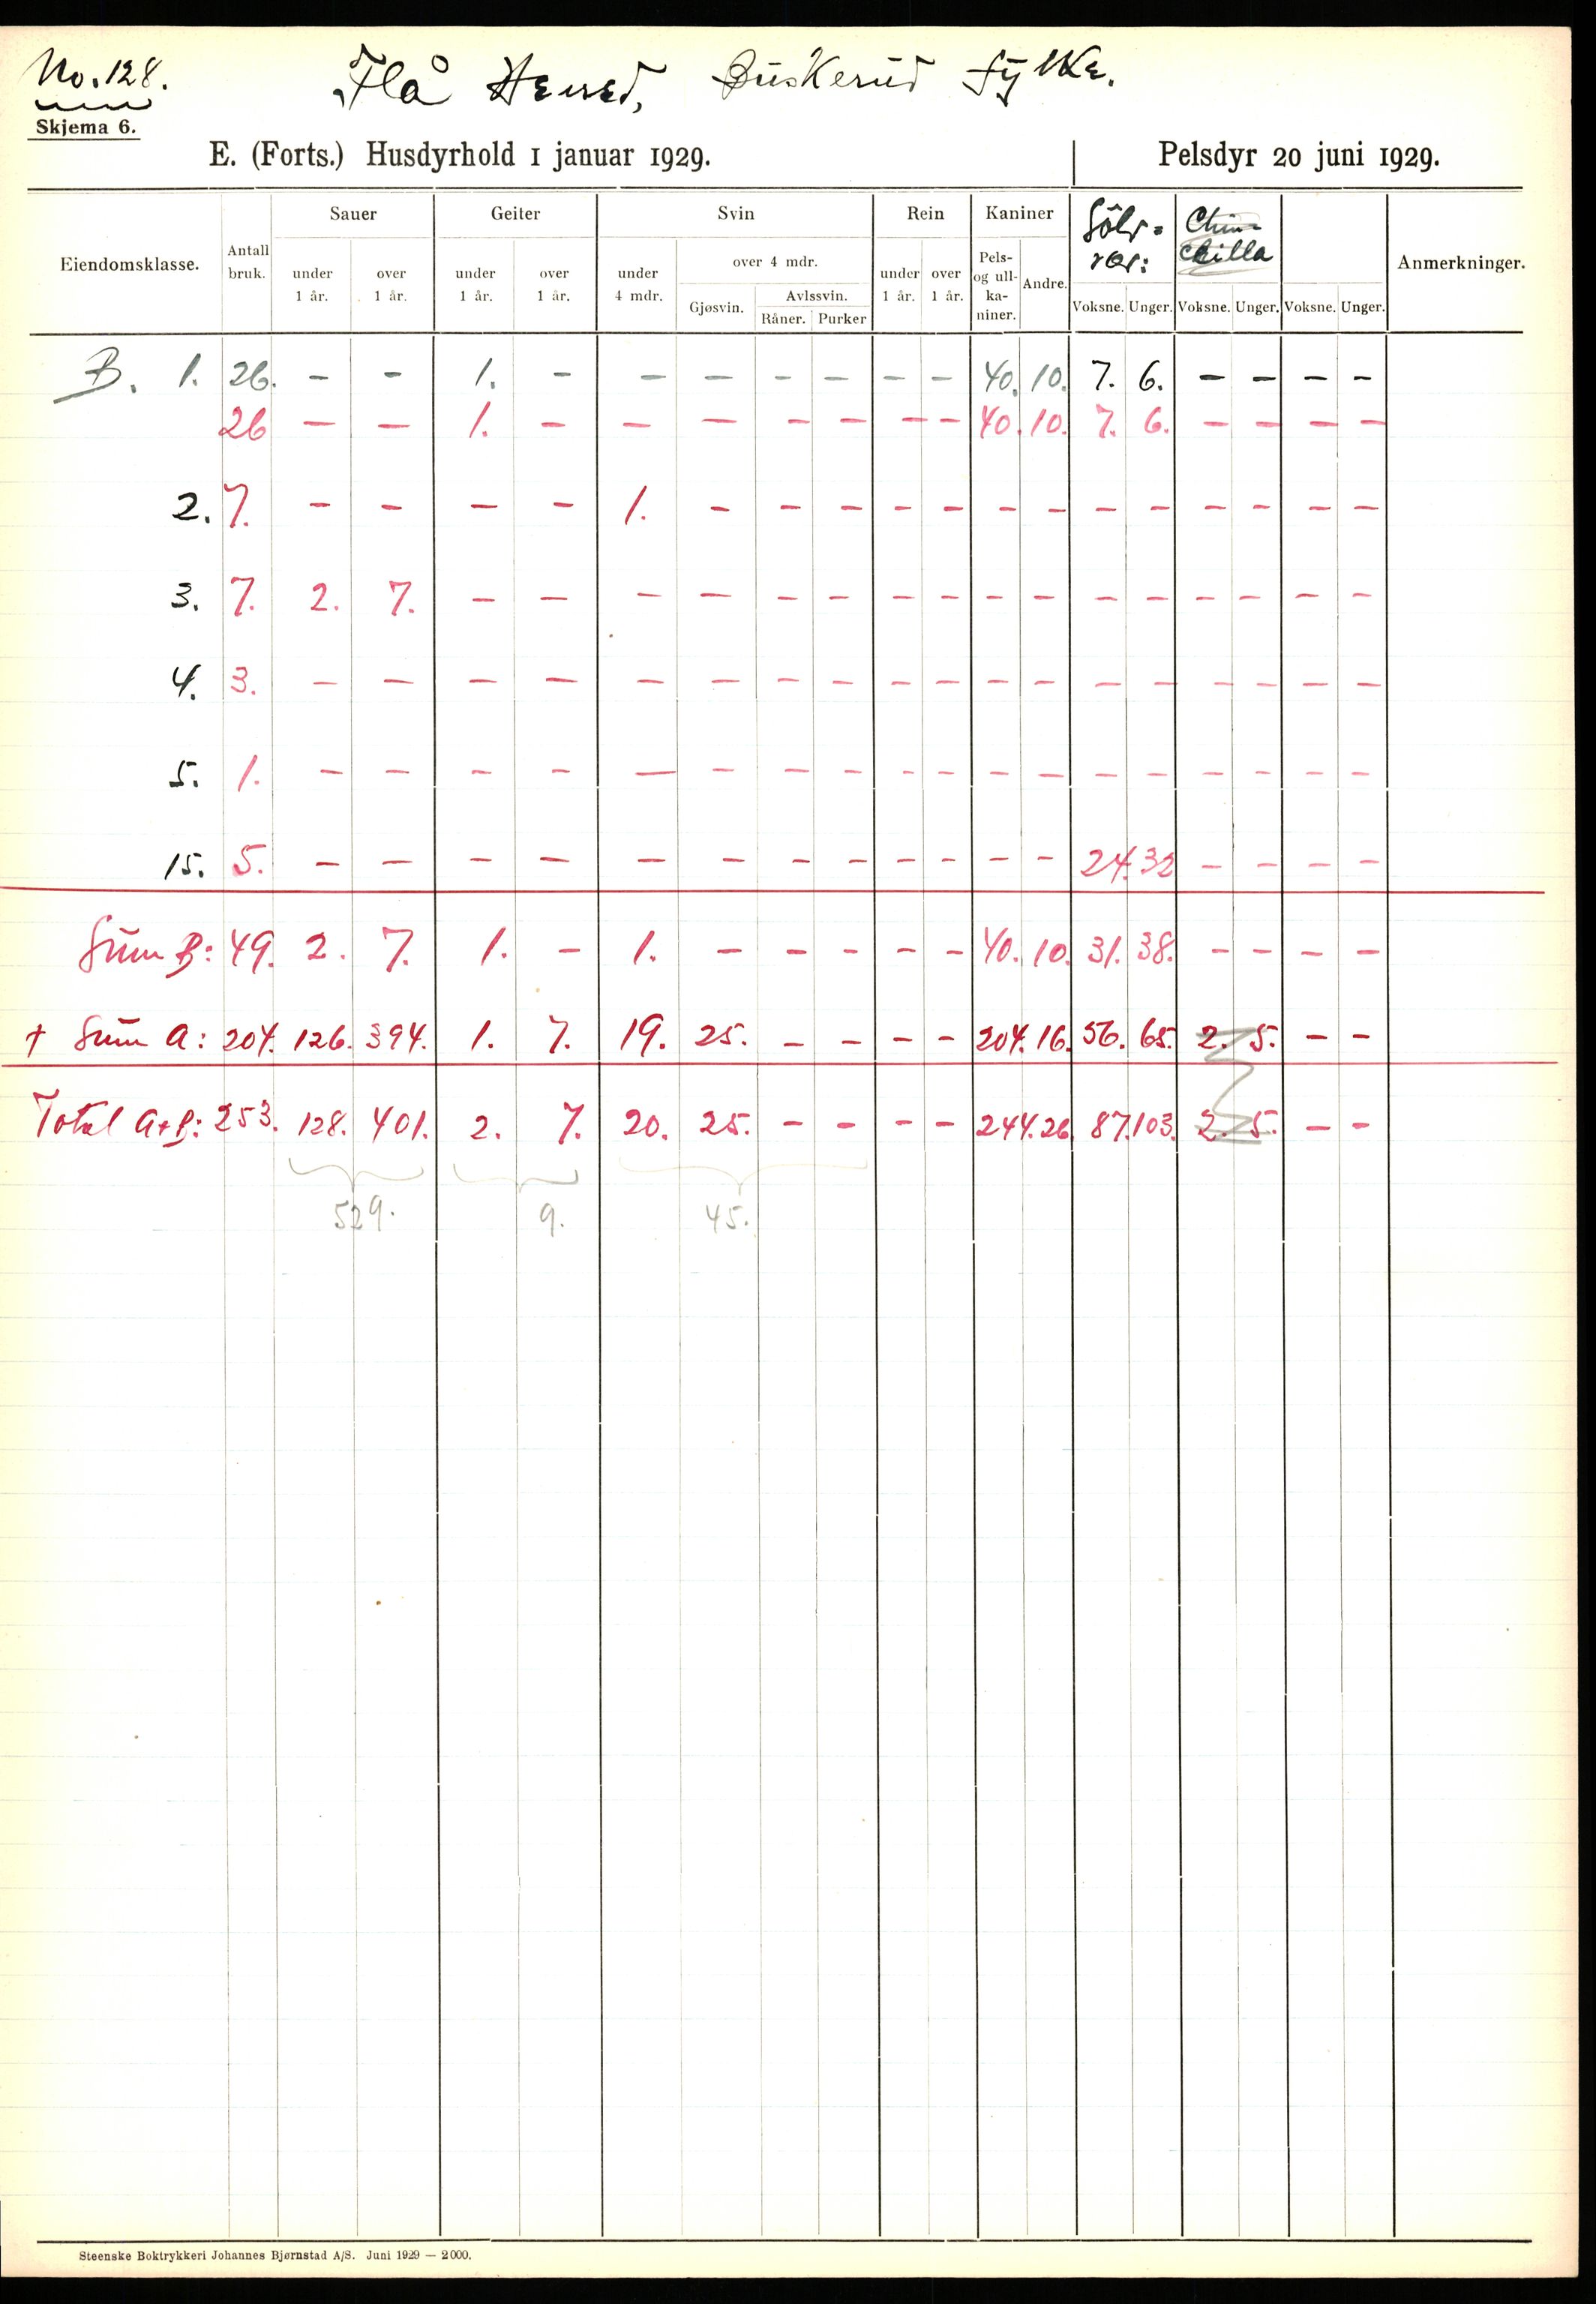 No. 128.
Flå Herred, Buskerud fylke.
Skjema 6.
E. (Forts.) Husdyrhold 1 januar 1929. Pelsdyr 20 juni 1929.
Eiendomsklasse. Antall bruk. Sauer Geiter Svin Rein Kaniner Sölv= rev: Chin= chilla Anmerkninger.
under 1 år. over 1 år. under 1 år. over 1 år. under 4 mdr. over 4 mdr. under 1 år. over 1 år. Pels- og ull- ka- niner. Andre.
Gjøsvin. Avlssvin. Voksne. Unger. Voksne. Unger. Voksne. Unger.
Råner. Purker
B. 1. 26. - - 1. - - - - - - - 40. 10. 7. 6. - - - -
26 - - 1. - - - - - - - 40. 10. 7. 6. - - - -
2. 7. - - - - 1. - - - - - - - - - - - - -
3. 7. 2. 7. - - - - - - - - - - - - - - - -
4. 3. - - - - - - - - - - - - - - - - - -
5. 1. - - - - - - - - - - - - - - - - - -
15. 5. - - - - - - - - - - - - 24. 32 - - - -
Sum B: 49. 2. 7. 1. - 1. - - - - - 40. 10. 31. 38. - - - -
+ Sum A: 204. 126. 394. 1. 7. 19. 25. - - - - 204. 16. 56. 65. 2. 5. - -
Total A+B: 253. 128. 401. 2. 7. 20. 25. - - - - 244. 26 87. 103. 2. 5. - -
529. 9. 45.
Steenske Boktrykkeri Johannes Bjørnstad A/S. Juni 1929 — 2000.